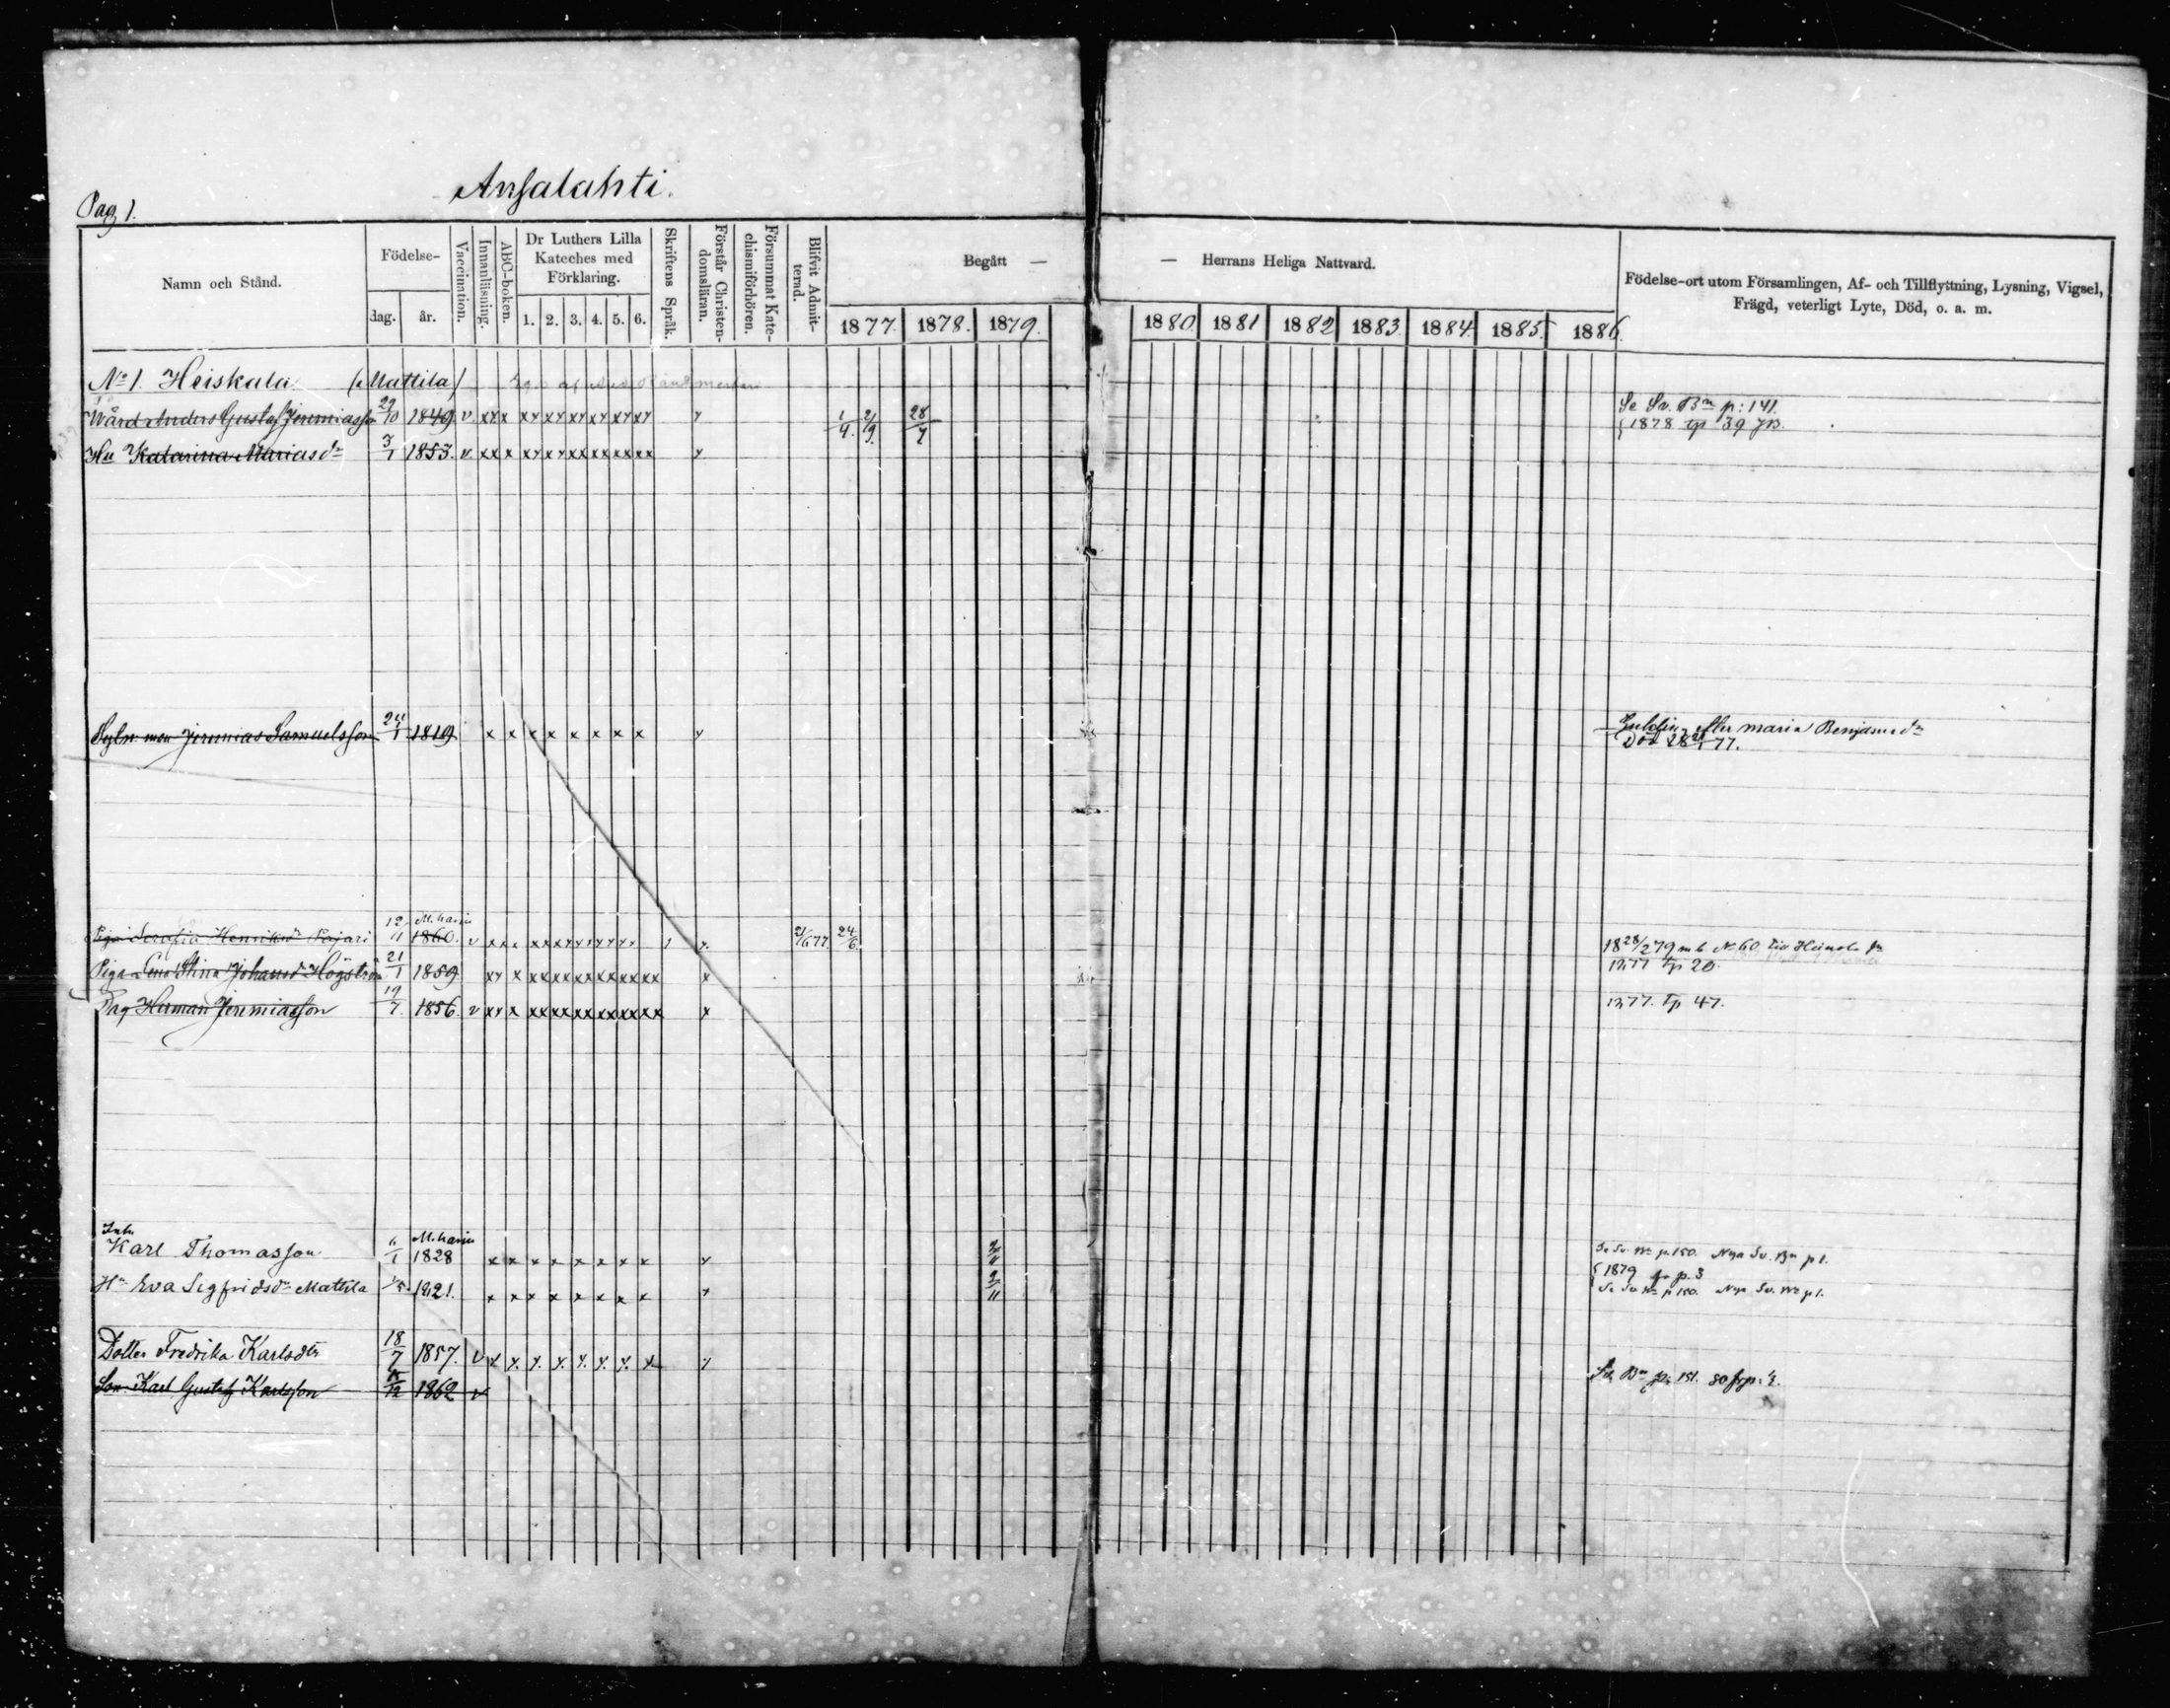 Pag 1.
Ansalahti.
Namn och Stånd.
Födelse-
dag. år.
Vaccination.
Innanläsning.
ABC-boken.
Dr Luthers Lilla
Kateches med
Förklaring.
1. 2. 3. 4. 5. 6.
Skriftens Språk.
Förstår Christen-
domsläran.
Försummat Kate-
chismiförhören.
Blifvit Admit-
terad.
Begått —
— Herrans Heliga Nattvard.
1877. 1878. 1879.
1880 1881 1882 1883 1884 1885 1886.
Födelse-ort utom Församlingen, Af- och Tillflyttning, Lysning, Vigsel,
Frägd, veterligt Lyte, Död, o. a. m.
No 1. Heiskala (Mattila)
Wärd Anders Gustaf Jeremiasson 29/10 1849. v x x x x x x x x x x x 1/4. 2/9. 28/7 Se Sv. Bn p: 141.
1878 tp 39
Hu Katarina Mariasdr 3/1 1853. v x x x x x x x x x x
Sytn. man Jeremias Samuelsson 24/1 1819 x x x x x x x x x maria Benjamsdr
Död 28 77.
12/11 M.harju
Piga Serafia Henriksdr Pajari 1860. v 21/6 77 24/6. 1828/2 79 m b No 60 till
Piga Lena Stina Johansd Högström 21/1 1859 x x x x x x x x x 1877 tp 20.
Dag Herman Jeremiasson 19/7. 1856. v x x x x x x x x x 1877. tp 47.
Inh.
Karl Thomasson 6/1 M.harju 1828 x x x x x x x x x 2/11 Se Sv. Bn p. 150. Nya Sv. Bn p 1.
1879 fr p. 3
Hu Eva Sigfridsdr Mattila 1/5. 1821. x x x x x x x x 2/11 Se Sv. Bn p 150. Nya Sv. Bn p 1.
Dotter Fredrika Karlsdtr 18/7 1857. v x x x x x x x x
Son Karl Gustaf Karlsson 15/12 1862 v Sv. Bn p: 151.